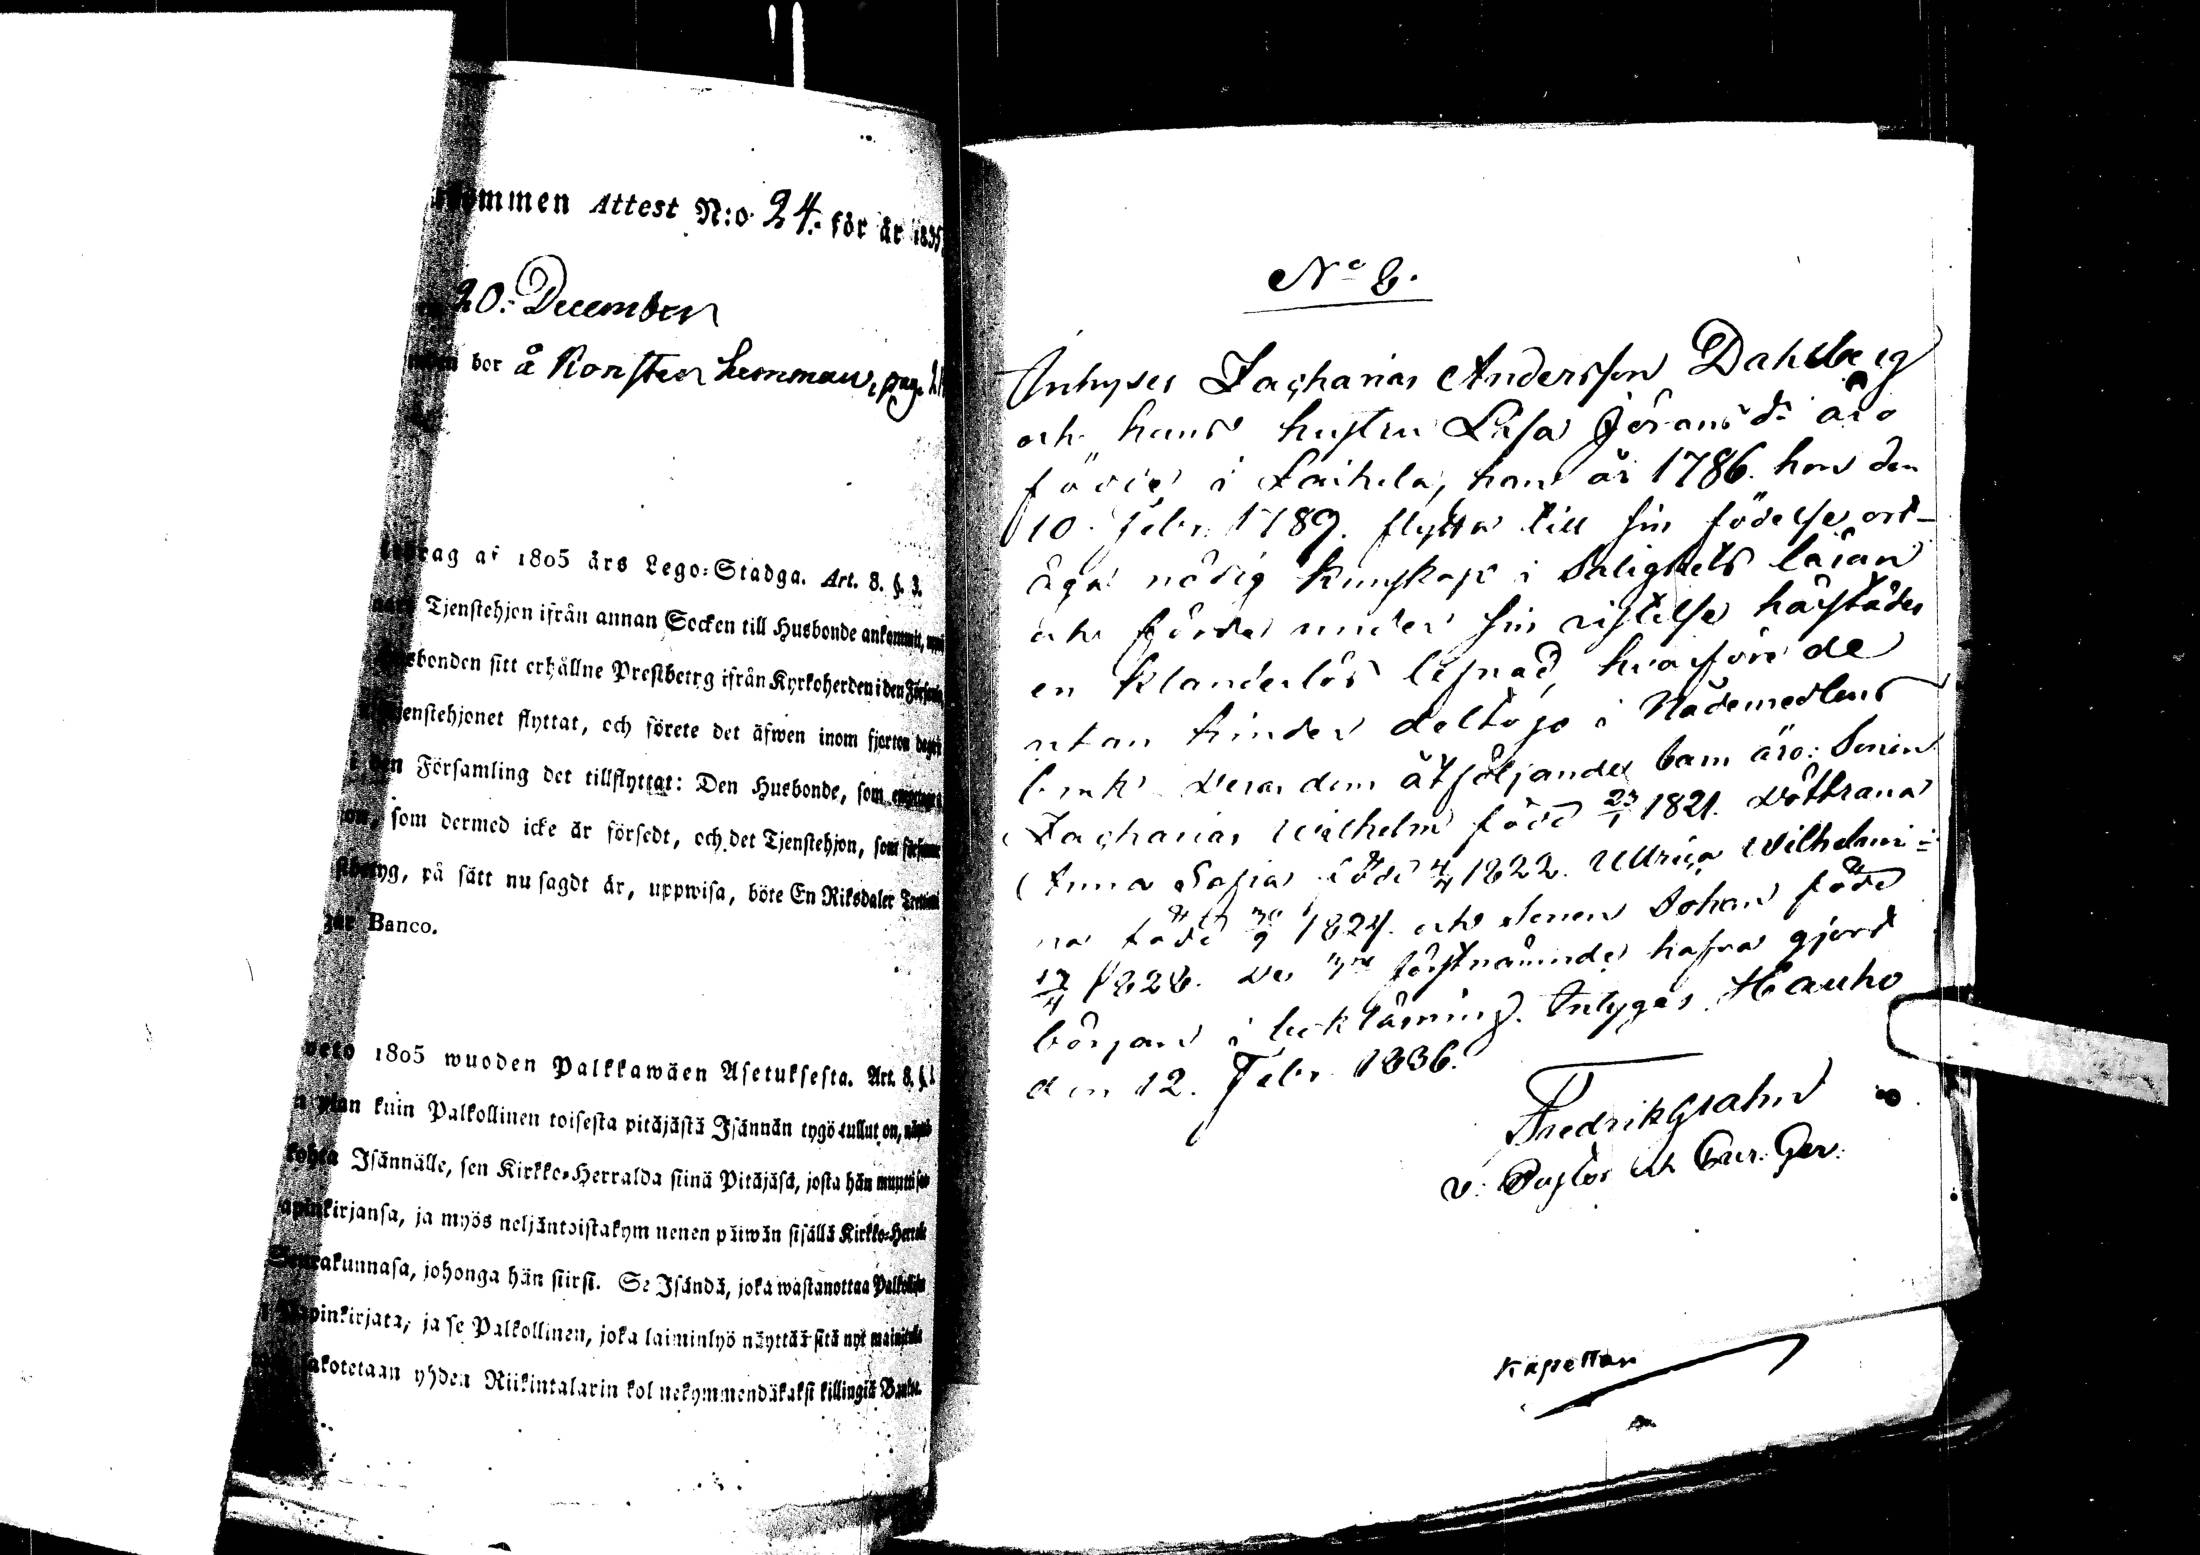 ommen Attest N:o 24. för år 1835
20. December
bor å Korsten hemman, pag.
rag af 1805 års Lego-Stadga. Art. 8. §. 3.
Tjenstehjon ifrån annan Socken till Husbonde ankommit,
bonden sitt erhållne Prestbetyg ifrån Kyrkoherden i den
enstehjonet flyttat, och förete det äfwen inom fjorton dagar
Församling det tillflyttat: Den Husbonde, som
som dermed icke är försedt, och det Tjenstehjon, som
yg, på sätt nu sagdt är, uppwisa, böte En Riksdaler
Banco.
1805 wuoden Palkkawäen Asetuksesta. Art. 8. §.
kuin Palkollinen toisesta pitäjästä Isännän tygö tullut on,
Isännälle, sen Kirkko-Herralda siinä Pitäjäsä, josta hän muutti
kirjansa, ja myös neljäntoistakymnenen päiwän sisällä Kirkko-
rakunnasa, johonga hän siirsi. Se Isändä, joka wastanottaa
pinkirjata, ja se Palkollinen, joka laiminlyö näyttää sitä nyt
akotetaan yhden Riikintalarin kolnekymmendäkaksi killingiä
N:o 8.
Inhyses Zacharias Andersson Dahlberg
och hans hustru Lisa Jöransd:r äro
födde i Laihela, han år 1786. hon den
10. Febr. 1789. flytta till sin födelse ort-
äga nödig kunskap i Salighets läran
och fördt under sin vistelse härstädes
en klanderlös lefnad, hvarföre de
utan hinder deltaga i Nådemedlens
bruk. Deras dem åtföljande barn äro: Sonen
Zacharias Wilhelm född 23/1 1821. Döttrarna
Anna Sofia född 4/4 1822. Ulrica Wilhelmi-
na född 30/9 1824. och Sonen Johan född
17/4 1828. De 3ne förstnämnde hafva gjort
början i boklärning. Intygas Hauho
den 12. Febr. 1836.
Fredrik Grahn
v. Pastor och Cur. Ger.
Kapellan